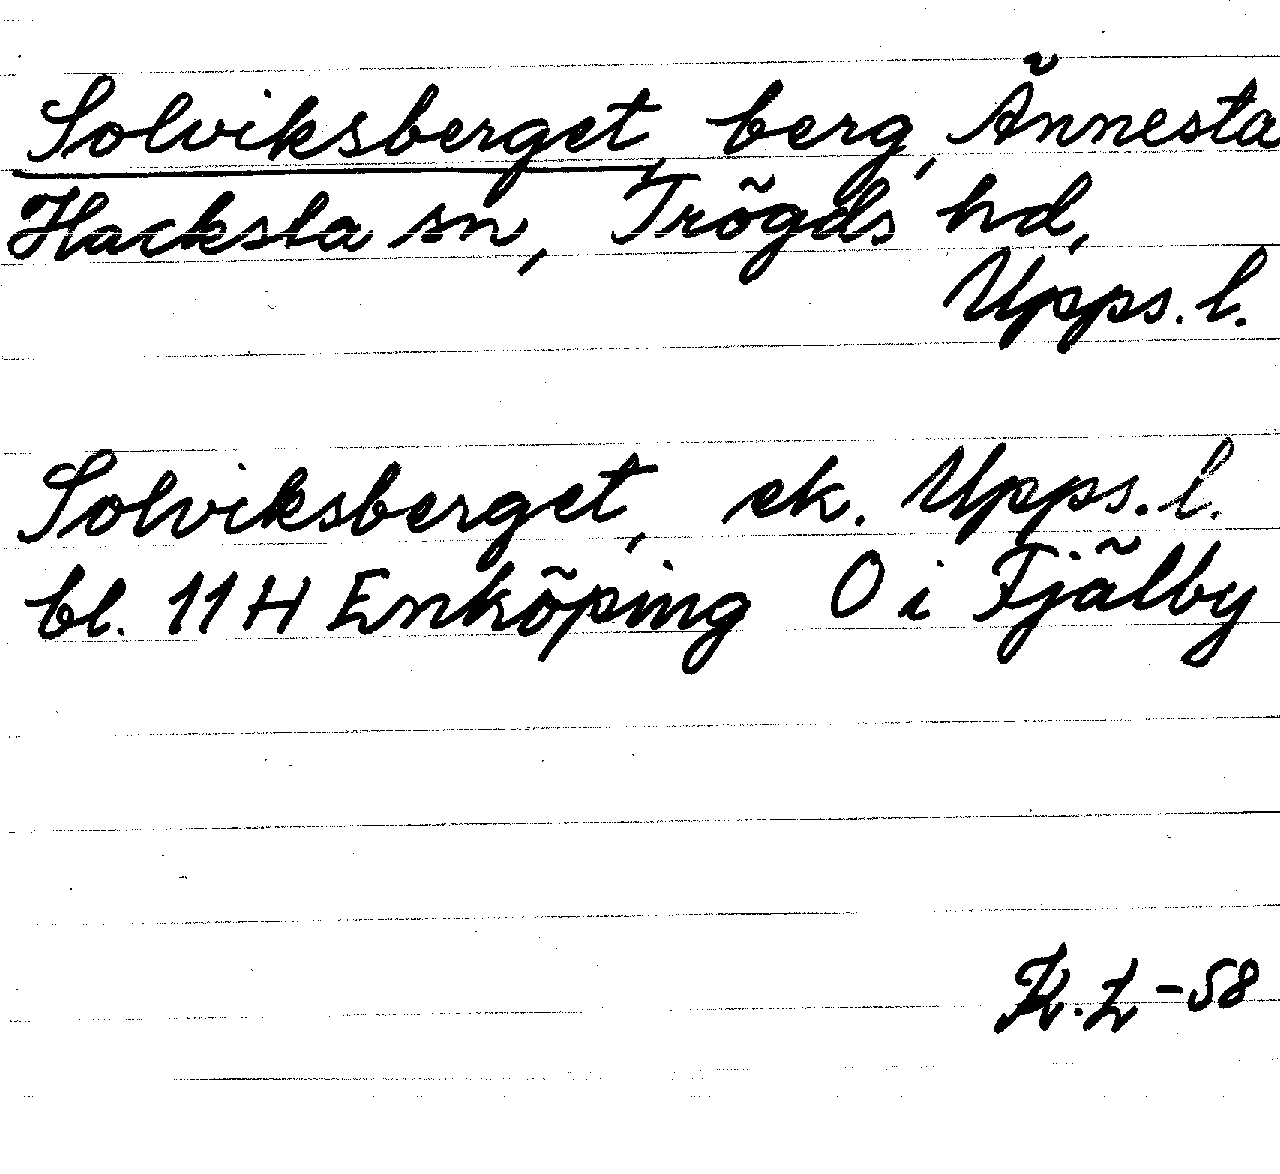 Solviksberget, berg, Ännesta
Hacksta sn, Trögds hd,
Upps. l.
Solviksberget, ek. Upps. l.
bl. 11 H Enköping O i Fjälby
K. L -58